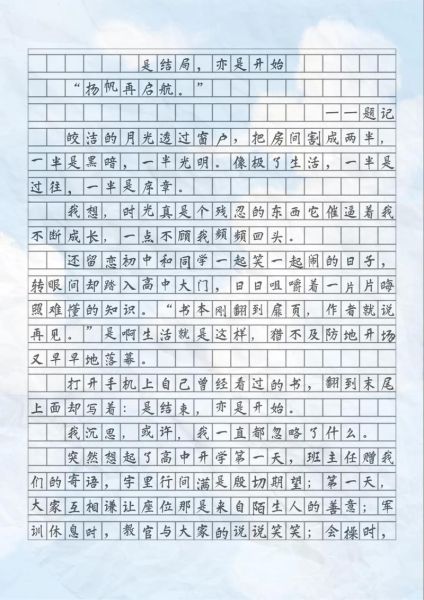 是结局，亦是开始
“扬帆再启航。”
——题记
皎洁的月光透过窗户，把房间割成两半，
一半是黑暗，一半光明。像极了生活，一半是
过往，一半是序章。
我想，时光真是个残忍的东西它催逼着我
不断成长，一点不顾我频频回头。
还留恋初中和同学一起笑一起闹的日子，
转眼间却踏入高中大门，日日咀嚼着一片片晦
照难懂的知识。“书本刚翻到扉页，作者就说
再见。”是啊生活就是这样，猎不及防地开场
又早早地落幕。
打开手机上自己曾经看过的书，翻到末尾
上面却写着：是结束，亦是开始。
我沉思，或许，我一直都忽略了什么。
突然想起了高中开学第一天，班主任赠我
们的寄语，字里行间满是殷切期望；第一天，
大家互相谦让座位那是来自陌生人的善意；军
训休息时，教官与大家的说说笑笑；会操时，